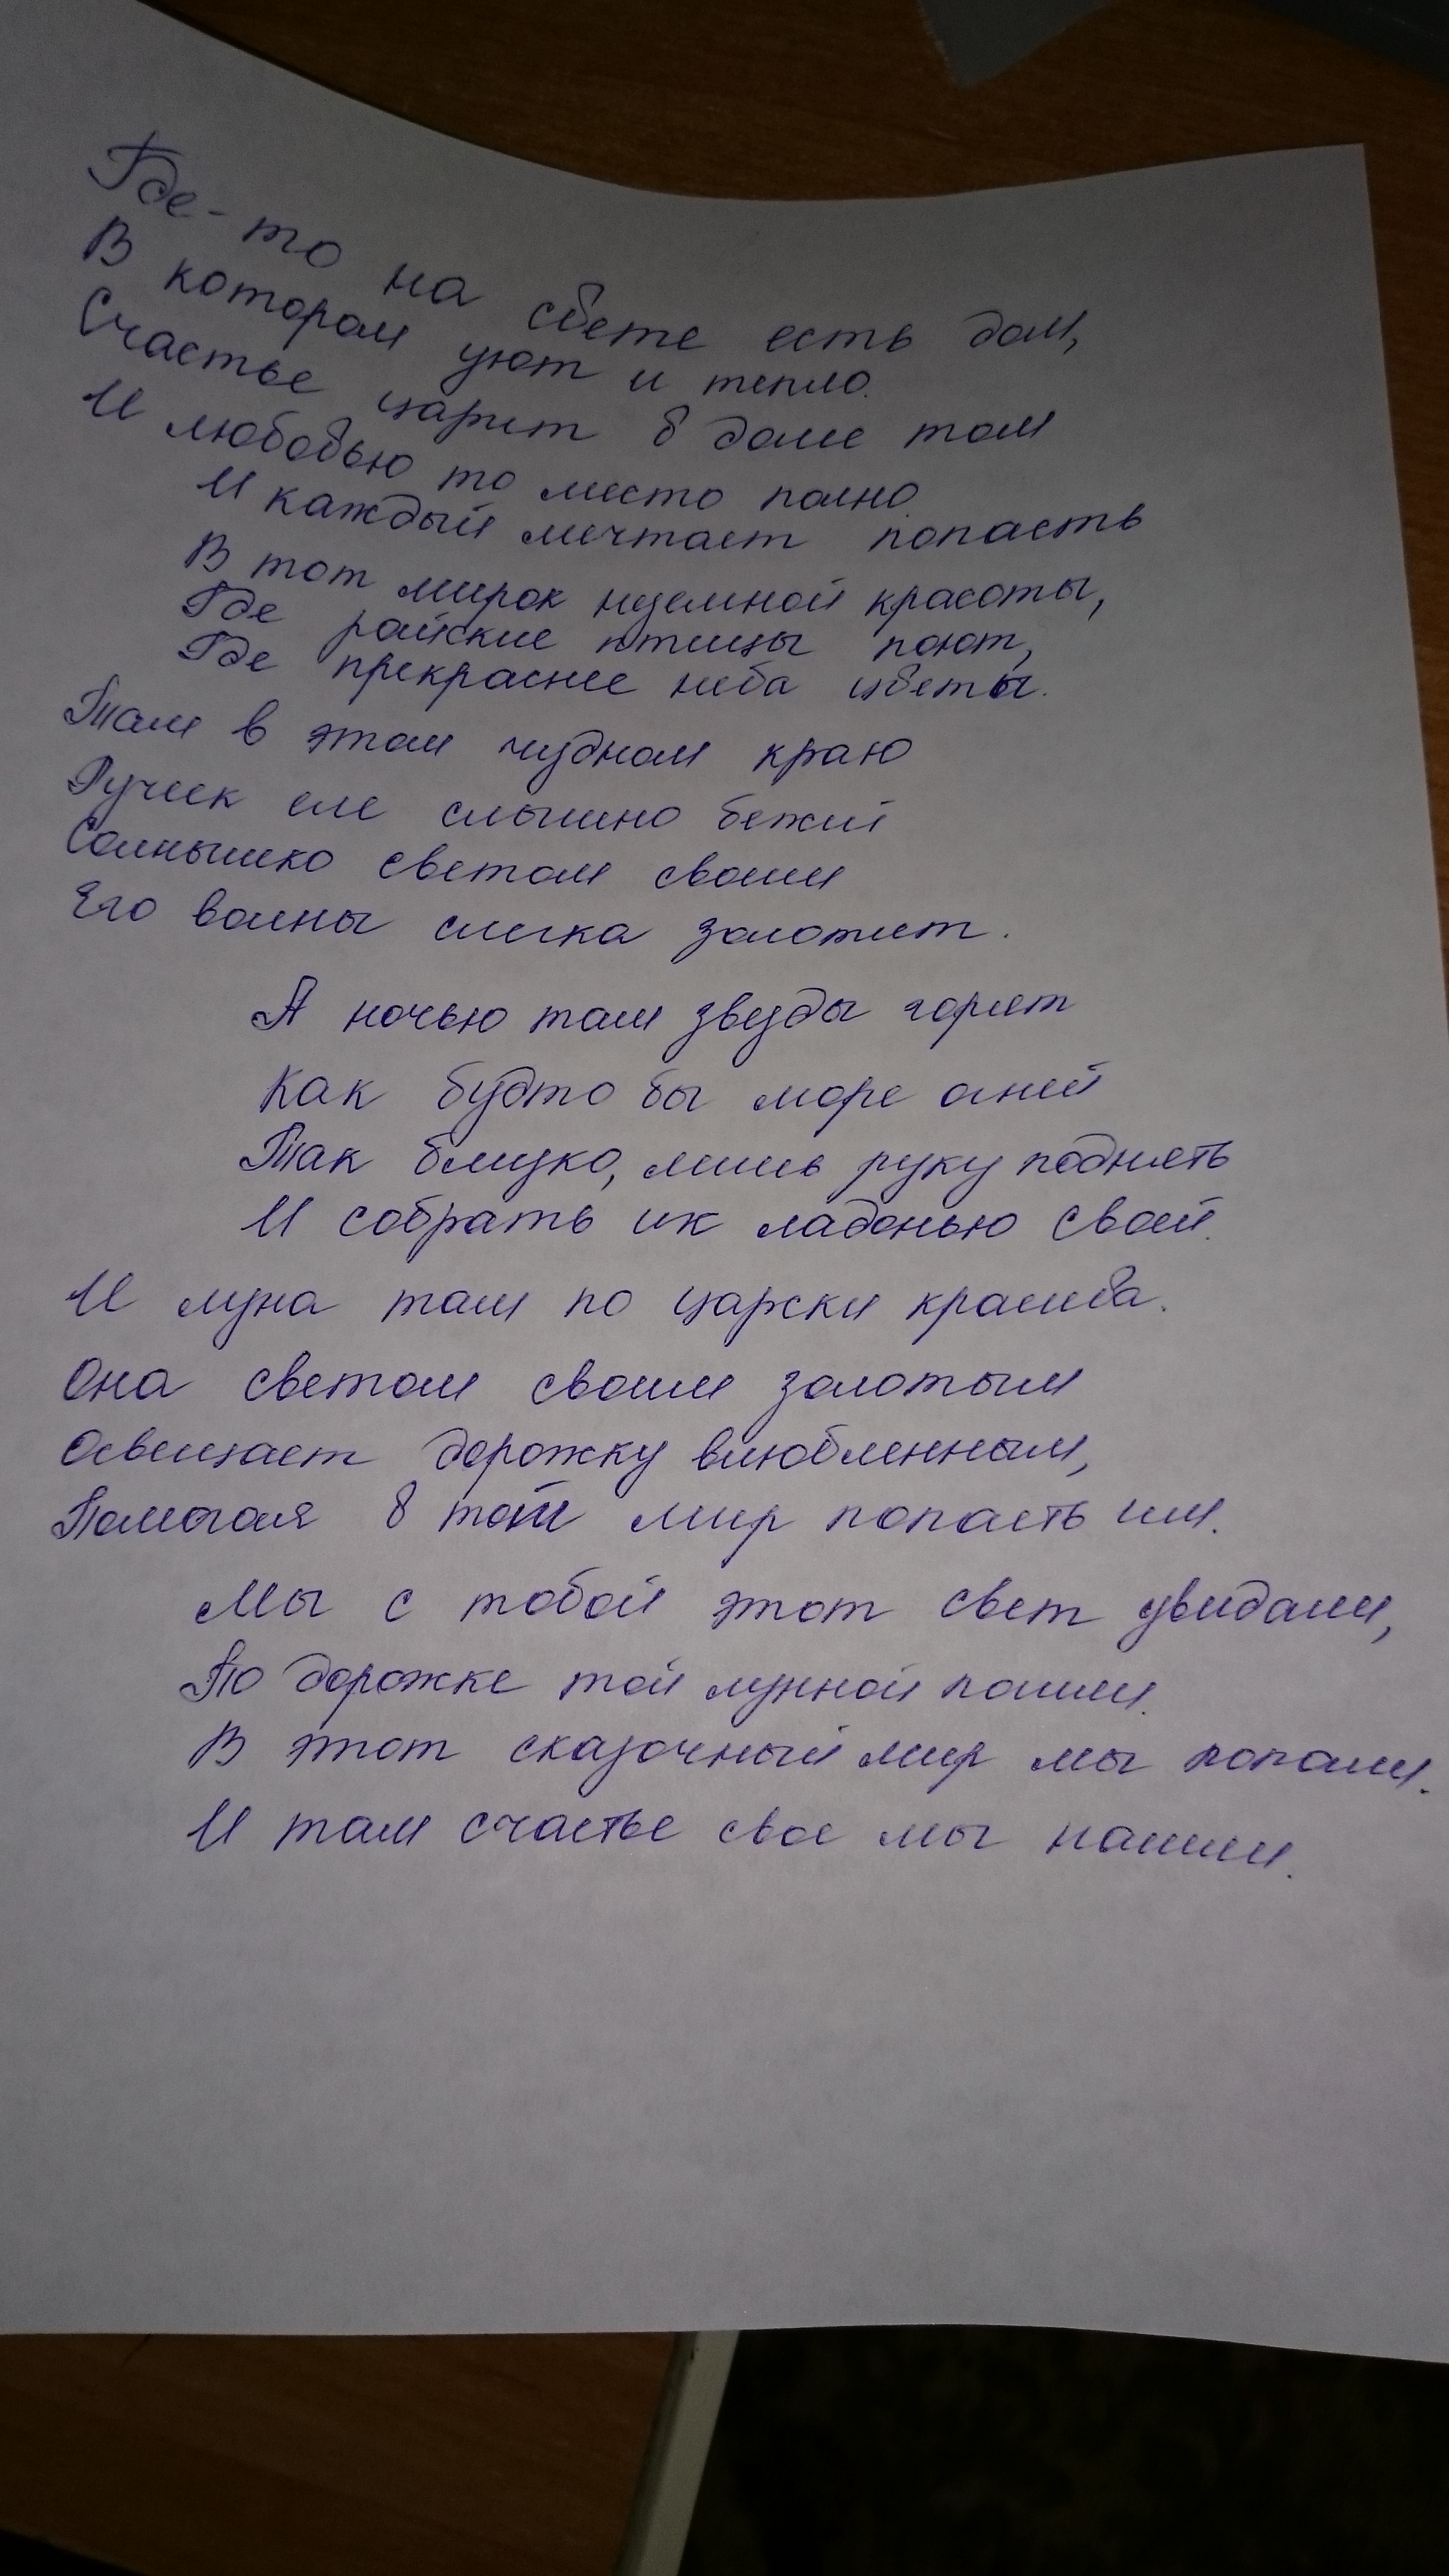 Где-то на свете есть дом,
В котором уют и тепло.
Счастье царит в доме том
И любовью то место полно.
И каждый мечтает попасть
В тот мирок неземной красоты,
Где райские птицы поют,
Где прекраснее неба цветы.
Там в этом чудном краю
Ручеек еле слышно бежит
Солнышко светом своим
Его волны слегка золотит.
А ночью там звезды горят
Как будто бы море огней
Так близко, лишь руку поднять
И собрать их ладонью своей.
И луна там по царски красива.
Она светом своим золотым
Освещает дорожку влюбленным,
Помогая в тот мир попасть им.
Мы с тобой этот свет увидали,
По дорожке той лунной пошли.
В этот сказочный мир мы попали.
И там счастье свое мы нашли.